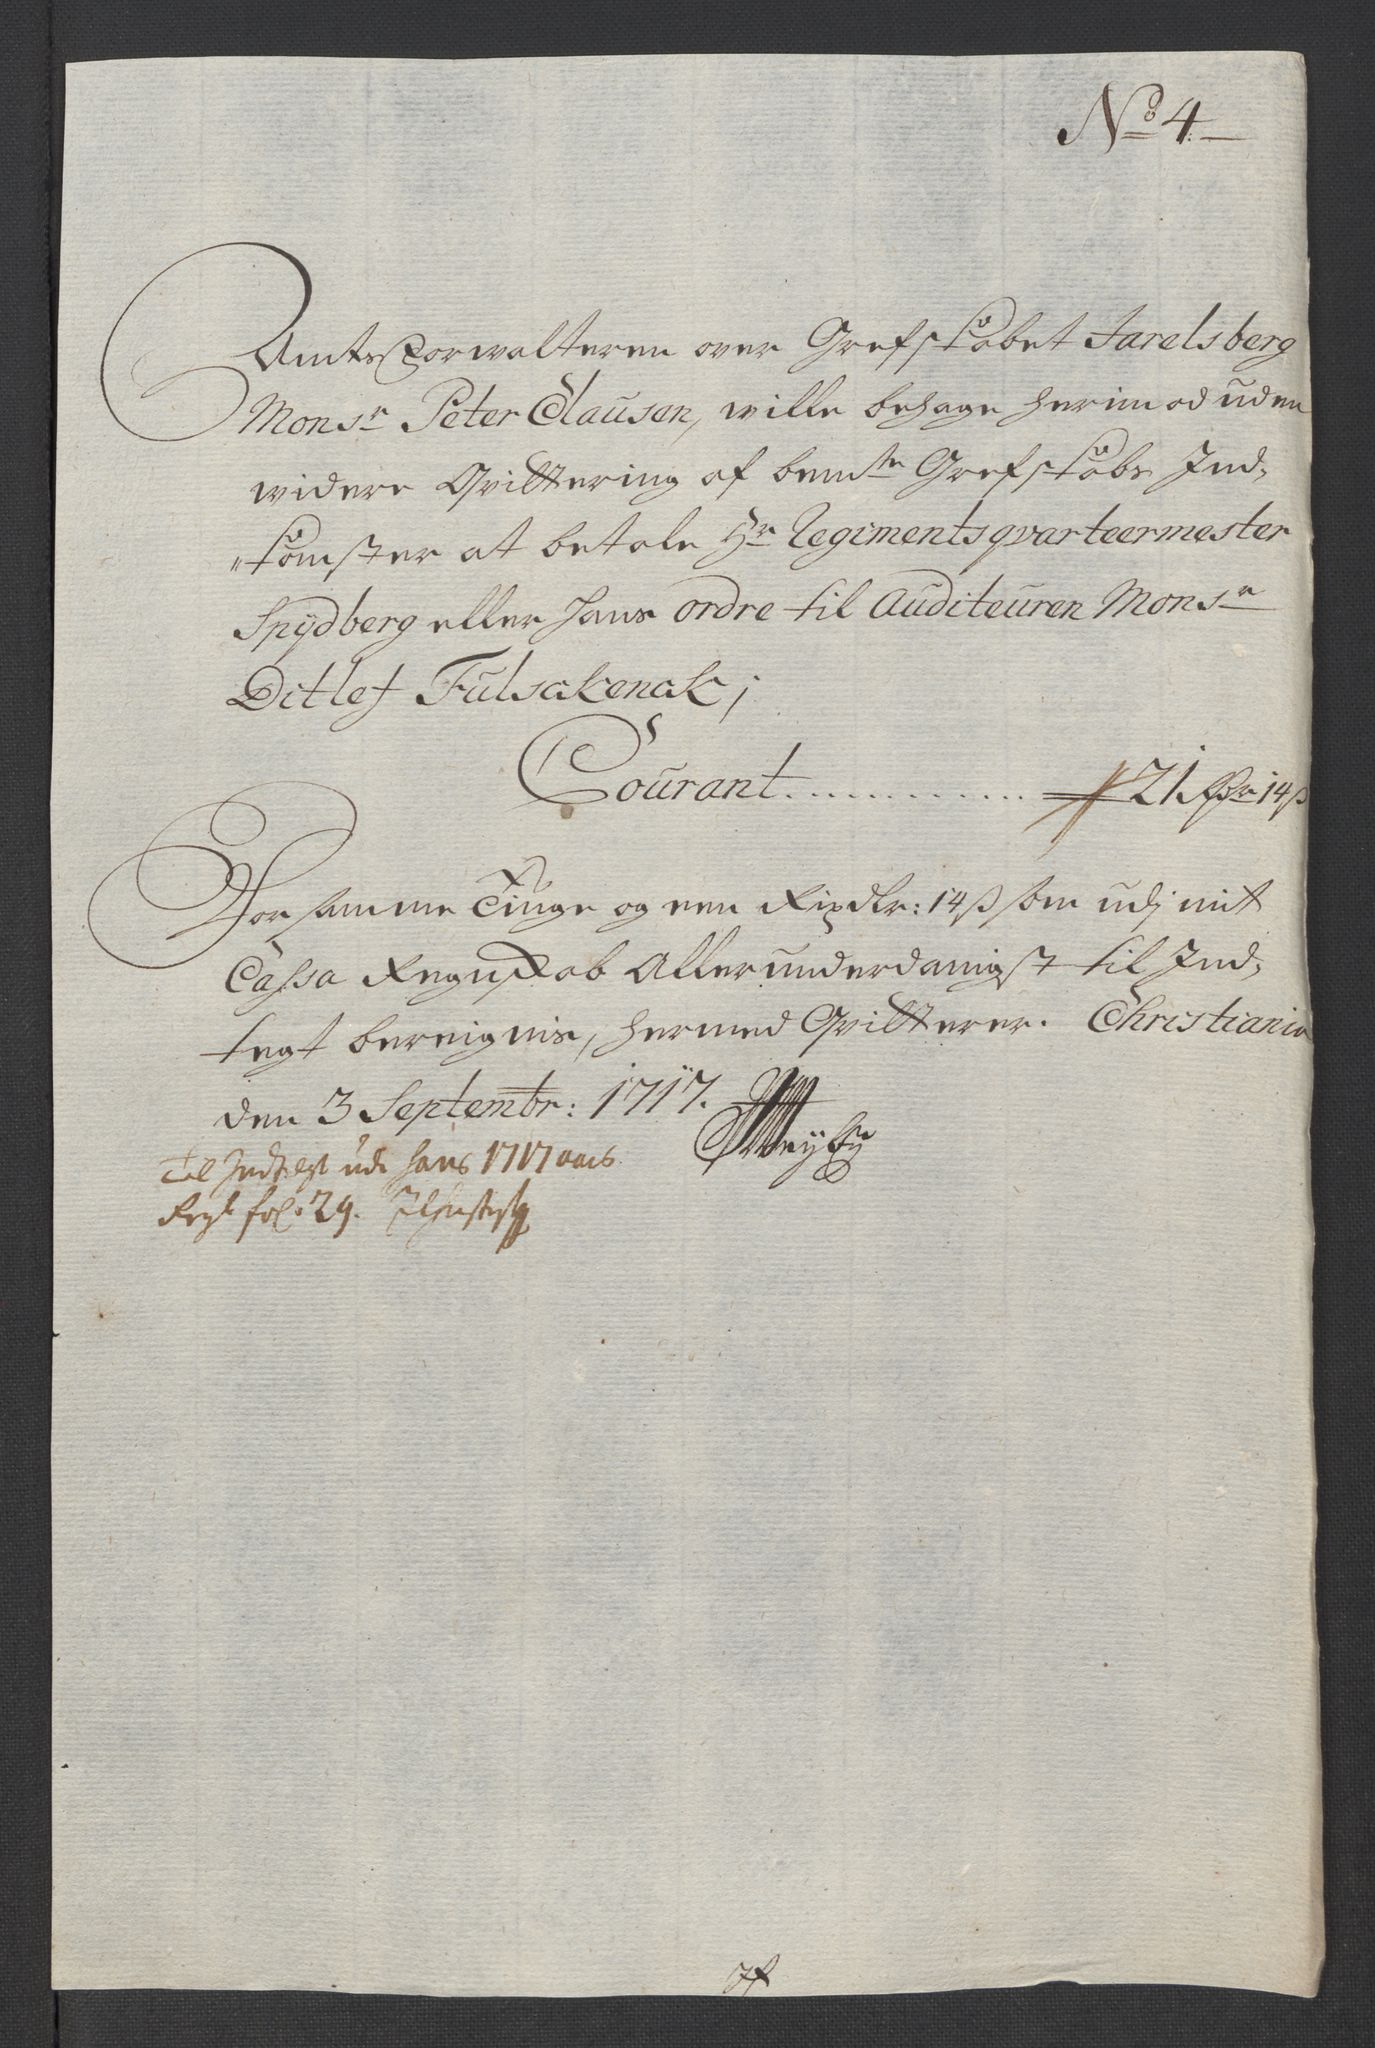 No 4.
Amtsforwalteren over Grefskabet Jarelsberg
Monsr Peter Clausen, wille behage herimod uden
widere Qvittering af bemte Grefskabs Ind-
"komster at betale Hr Regimentsqvarteermester
Spÿdberg eller hans ordre til Auditeuren Monsr
Ditlef Fulsakenak;
Courant . . . . . . . . . . 21 Rdr 14 ß
For samme Tiuge og een Rixdlr: 14 ß som udj mit
Cassa Regnskab Allerunderdanigst til Ind-
tegt bereignis, hermed Qvitterer. Christiania
den 3 Septembr: 1717.
Til Indtegt udi hans 1717 aars
Regk fol: 29.